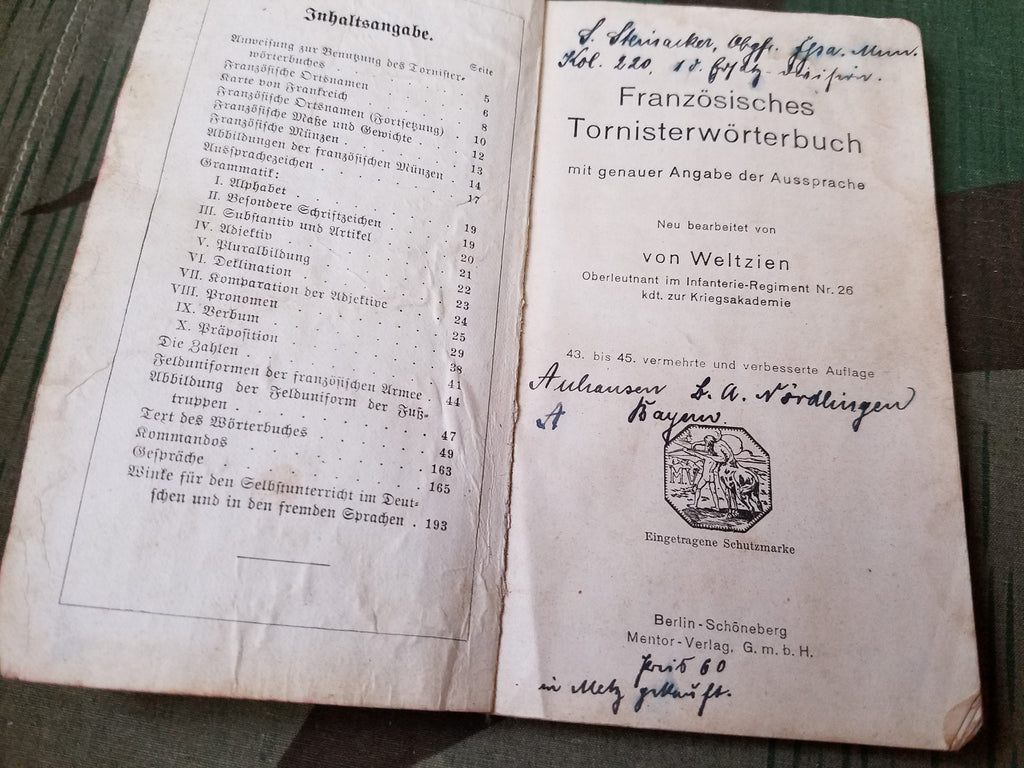 Inhaltsangabe.
Seite
Anweisung zur Benutzung des Tornister-
wörterbuches . . . . . . 5
Französische Ortsnamen . . . . . 6
Karte von Frankreich . . . . . 8
Französische Ortsnamen (Fortsetzung) . 10
Französische Maße und Gewichte . . . 12
Französische Münzen . . . . . 13
Abbildungen der französischen Münzen . 14
Aussprachezeichen . . . . . 17
Grammatik:
I. Alphabet . . . . . 19
II. Besondere Schriftzeichen . . . . 19
III. Substantiv und Artikel . . . . 20
IV. Adjektiv . . . . . 21
V. Pluralbildung . . . . . 22
VI. Deklination . . . . . 23
VII. Komparation der Adjektive . . . 24
VIII. Pronomen . . . . . 25
IX. Verbum . . . . . 29
X. Präposition . . . . . 38
Die Zahlen . . . . . 41
Felduniformen der französischen Armee . 44
Abbildung der Felduniform der Fuß-
truppen . . . . . 47
Text des Wörterbuches . . . . . 49
Kommandos . . . . . 163
Gespräche . . . . . 165
Winke für den Selbstunterricht im Deut-
schen und in den fremden Sprachen . 193
S. Steinacker, Obgfr. Mun.
Kol. 220, 10. Ersatz-Division.
Französisches
Tornisterwörterbuch
mit genauer Angabe der Aussprache
Neu bearbeitet von
von Weltzien
Oberleutnant im Infanterie-Regiment Nr. 26
kdt. zur Kriegsakademie
43. bis 45. vermehrte und verbesserte Auflage
Auhausen B. A. Nördlingen
A Bayern
MV
Eingetragene Schutzmarke
Berlin-Schöneberg
Mentor-Verlag, G. m. b. H.
Preis 60
in Metz gekauft.